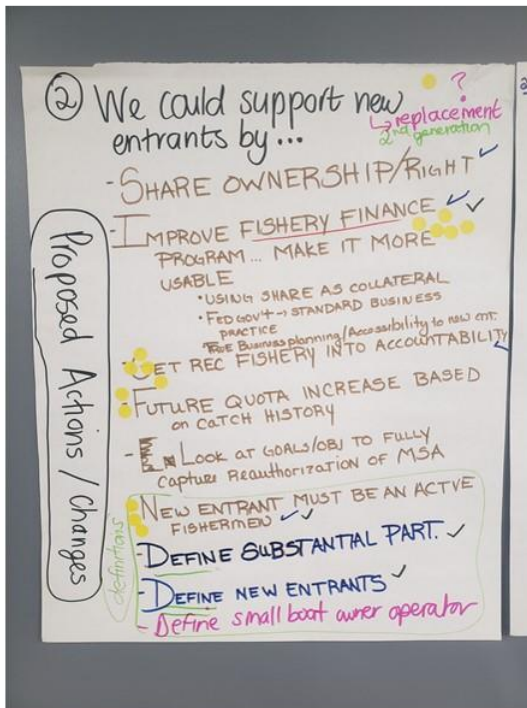 ② We could support new
entrants by...
?
↳ replacement
2nd generation
- SHARE OWNERSHIP/RIGHT ✓
- IMPROVE FISHERY FINANCE ✓ ✓
PROGRAM... MAKE IT MORE
USABLE
• USING SHARE AS COLLATERAL
• FED GOV'T → STANDARD BUSINESS
PRACTICE
Business planning/Accessibility to new ent.
- GET REC FISHERY INTO ACCOUNTABILITY ✓
- FUTURE QUOTA INCREASE BASED
on CATCH HISTORY
- LOOK AT GOALS/OBJ TO FULLY
CAPTURE REAUTHORIZATION OF MSA
NEW ENTRANT MUST BE AN ACTVE
FISHERMEN ✓ ✓
- DEFINE SUBSTANTIAL PART. ✓
- DEFINE NEW ENTRANTS ✓
- Define small boat owner operator
definitions
Proposed Actions / Changes